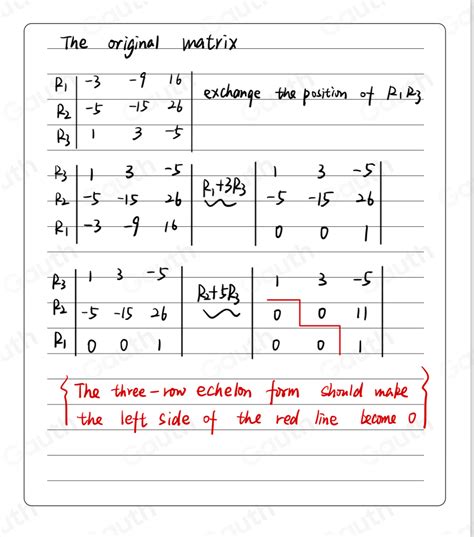 The original matrix
R1 | -3 -9 16 |
R2 | -5 -15 26 | exchange the position of R1 R3
R3 | 1 3 -5 |
R3 | 1 3 -5 | R1+3R3 | 1 3 -5 |
R2 | -5 -15 26 | | -5 -15 26 |
R1 | -3 -9 16 | | 0 0 1 |
R3 | 1 3 -5 | R2+5R3 | 1 3 -5 |
R2 | -5 -15 26 | | 0 0 11 |
R1 | 0 0 1 | | 0 0 1 |
{ The three-row echelon form should make }
{ the left side of the red line become 0 }
Gauth